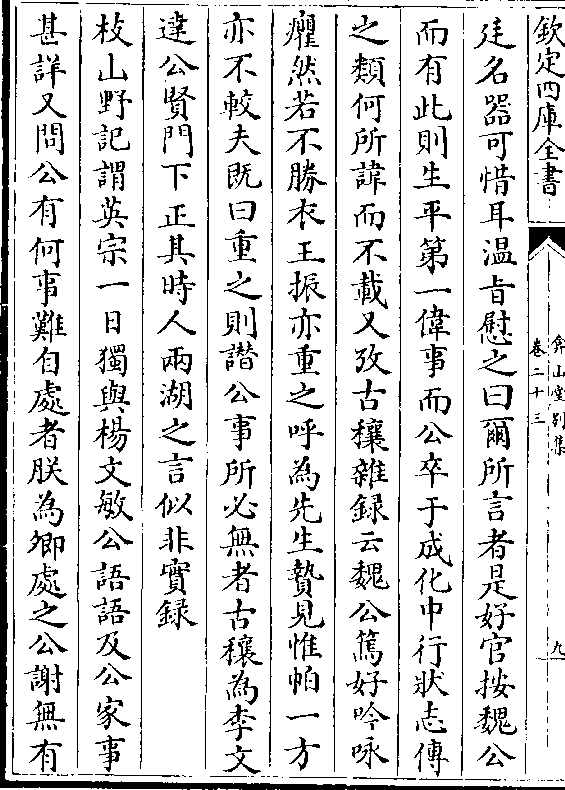 欽定四庫全書
弇山堂别集
卷二十三
九
廷名器可惜耳温㫖慰之曰爾所言者是好官按魏公
而有此則生平第一偉事而公卒于成化中行狀志傳
之類何所諱而不載又攷古穰雜録云魏公篤好吟咏
癯然若不勝衣王振亦重之呼為先生贄見惟帕一方
亦不較夫既曰重之則譖公事所必無者古穰為李文
達公賢門下正其時人兩湖之言似非實録
枝山野記謂英宗一日獨與楊文敏公語語及公家事
甚詳又問公有何事難自處者朕為卿處之公謝無有